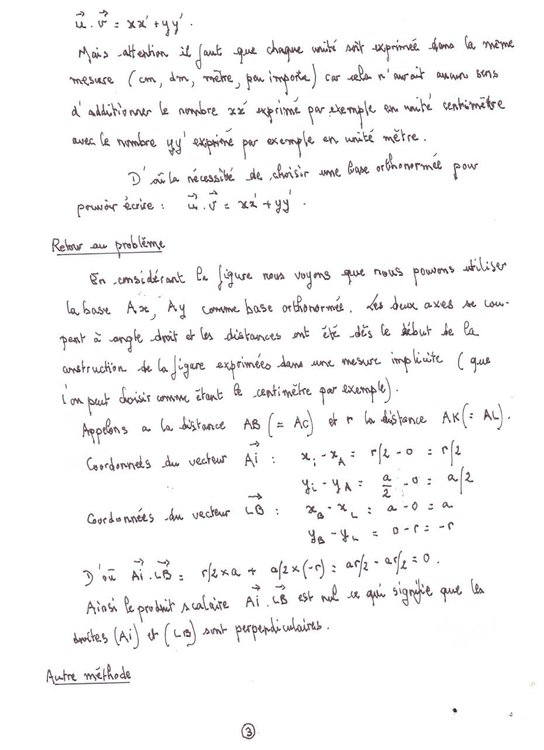 u⃗ . v⃗ = xx' + yy' .
Mais attention il faut que chaque unité soit exprimée dans la même
mesure ( cm, dm, mètre, peu importe ) car cela n'aurait aucun sens
d'additionner le nombre xx' exprimé par exemple en unité centimètre
avec le nombre yy' exprimé par exemple en unité mètre.
D'où la nécessité de choisir une base orthonormée pour
pouvoir écrire : u⃗ . v⃗ = xx' + yy' .
Retour au problème
En considérant la figure nous voyons que nous pouvons utiliser
la base Ax, Ay comme base orthonormée. Les deux axes se cou-
pent à angle droit et les distances ont été dès le début de la
construction de la figure exprimées dans une mesure implicite ( que
l'on peut choisir comme étant le centimètre par exemple ).
Appelons a la distance AB ( = AC ) et r la distance AK ( = AL ).
Coordonnées du vecteur Ai⃗ : xi - xA = r/2 - 0 = r/2
yi - yA = a/2 - 0 = a/2
Coordonnées du vecteur LB⃗ : xB - xL = a - 0 = a
yB - yL = 0 - r = -r
D'où Ai⃗ . LB⃗ = r/2 × a + a/2 × (-r) = ar/2 - ar/2 = 0 .
Ainsi le produit scalaire Ai⃗ . LB⃗ est nul ce qui signifie que les
droites (Ai) et (LB) sont perpendiculaires.
Autre méthode
3